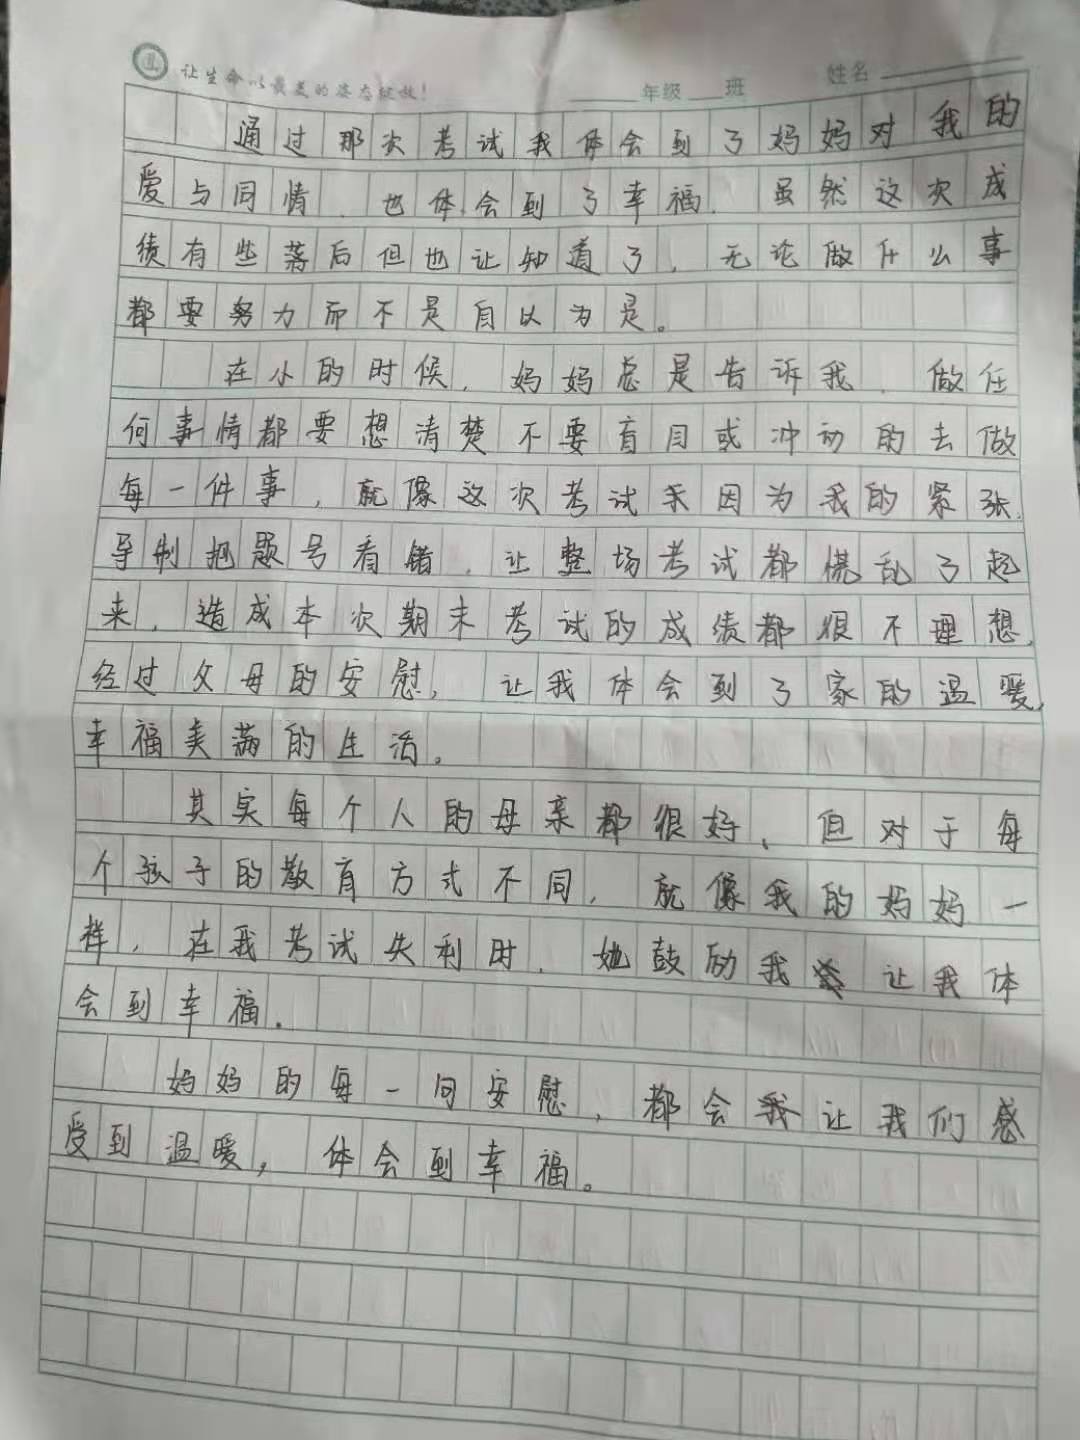 让生命以最美的姿态绽放!
年级 班 姓名
通过那次考试我体会到了妈妈对我的
爱与同情、也体会到了幸福、虽然这次成
绩有些落后但也让知道了,无论做什么事
都要努力而不是自以为是。
在小的时候,妈妈总是告诉我、做任
何事情都要想清楚不要盲目或冲动的去做
每一件事,就像这次考试我因为我的紧张,
导制把题号看错、让整场考试都慌乱了起
来,造成本次期末考试的成绩都很不理想,
经过父母的安慰,让我体会到了家的温暖,
幸福美满的生活。
其实每个人的母亲都很好、但对于每
个孩子的教育方式不同,就像我的妈妈一
样,在我考试失利时、她鼓励我 让我体
会到幸福.
妈妈的每一句安慰,都会 让我们感
受到温暖,体会到幸福。